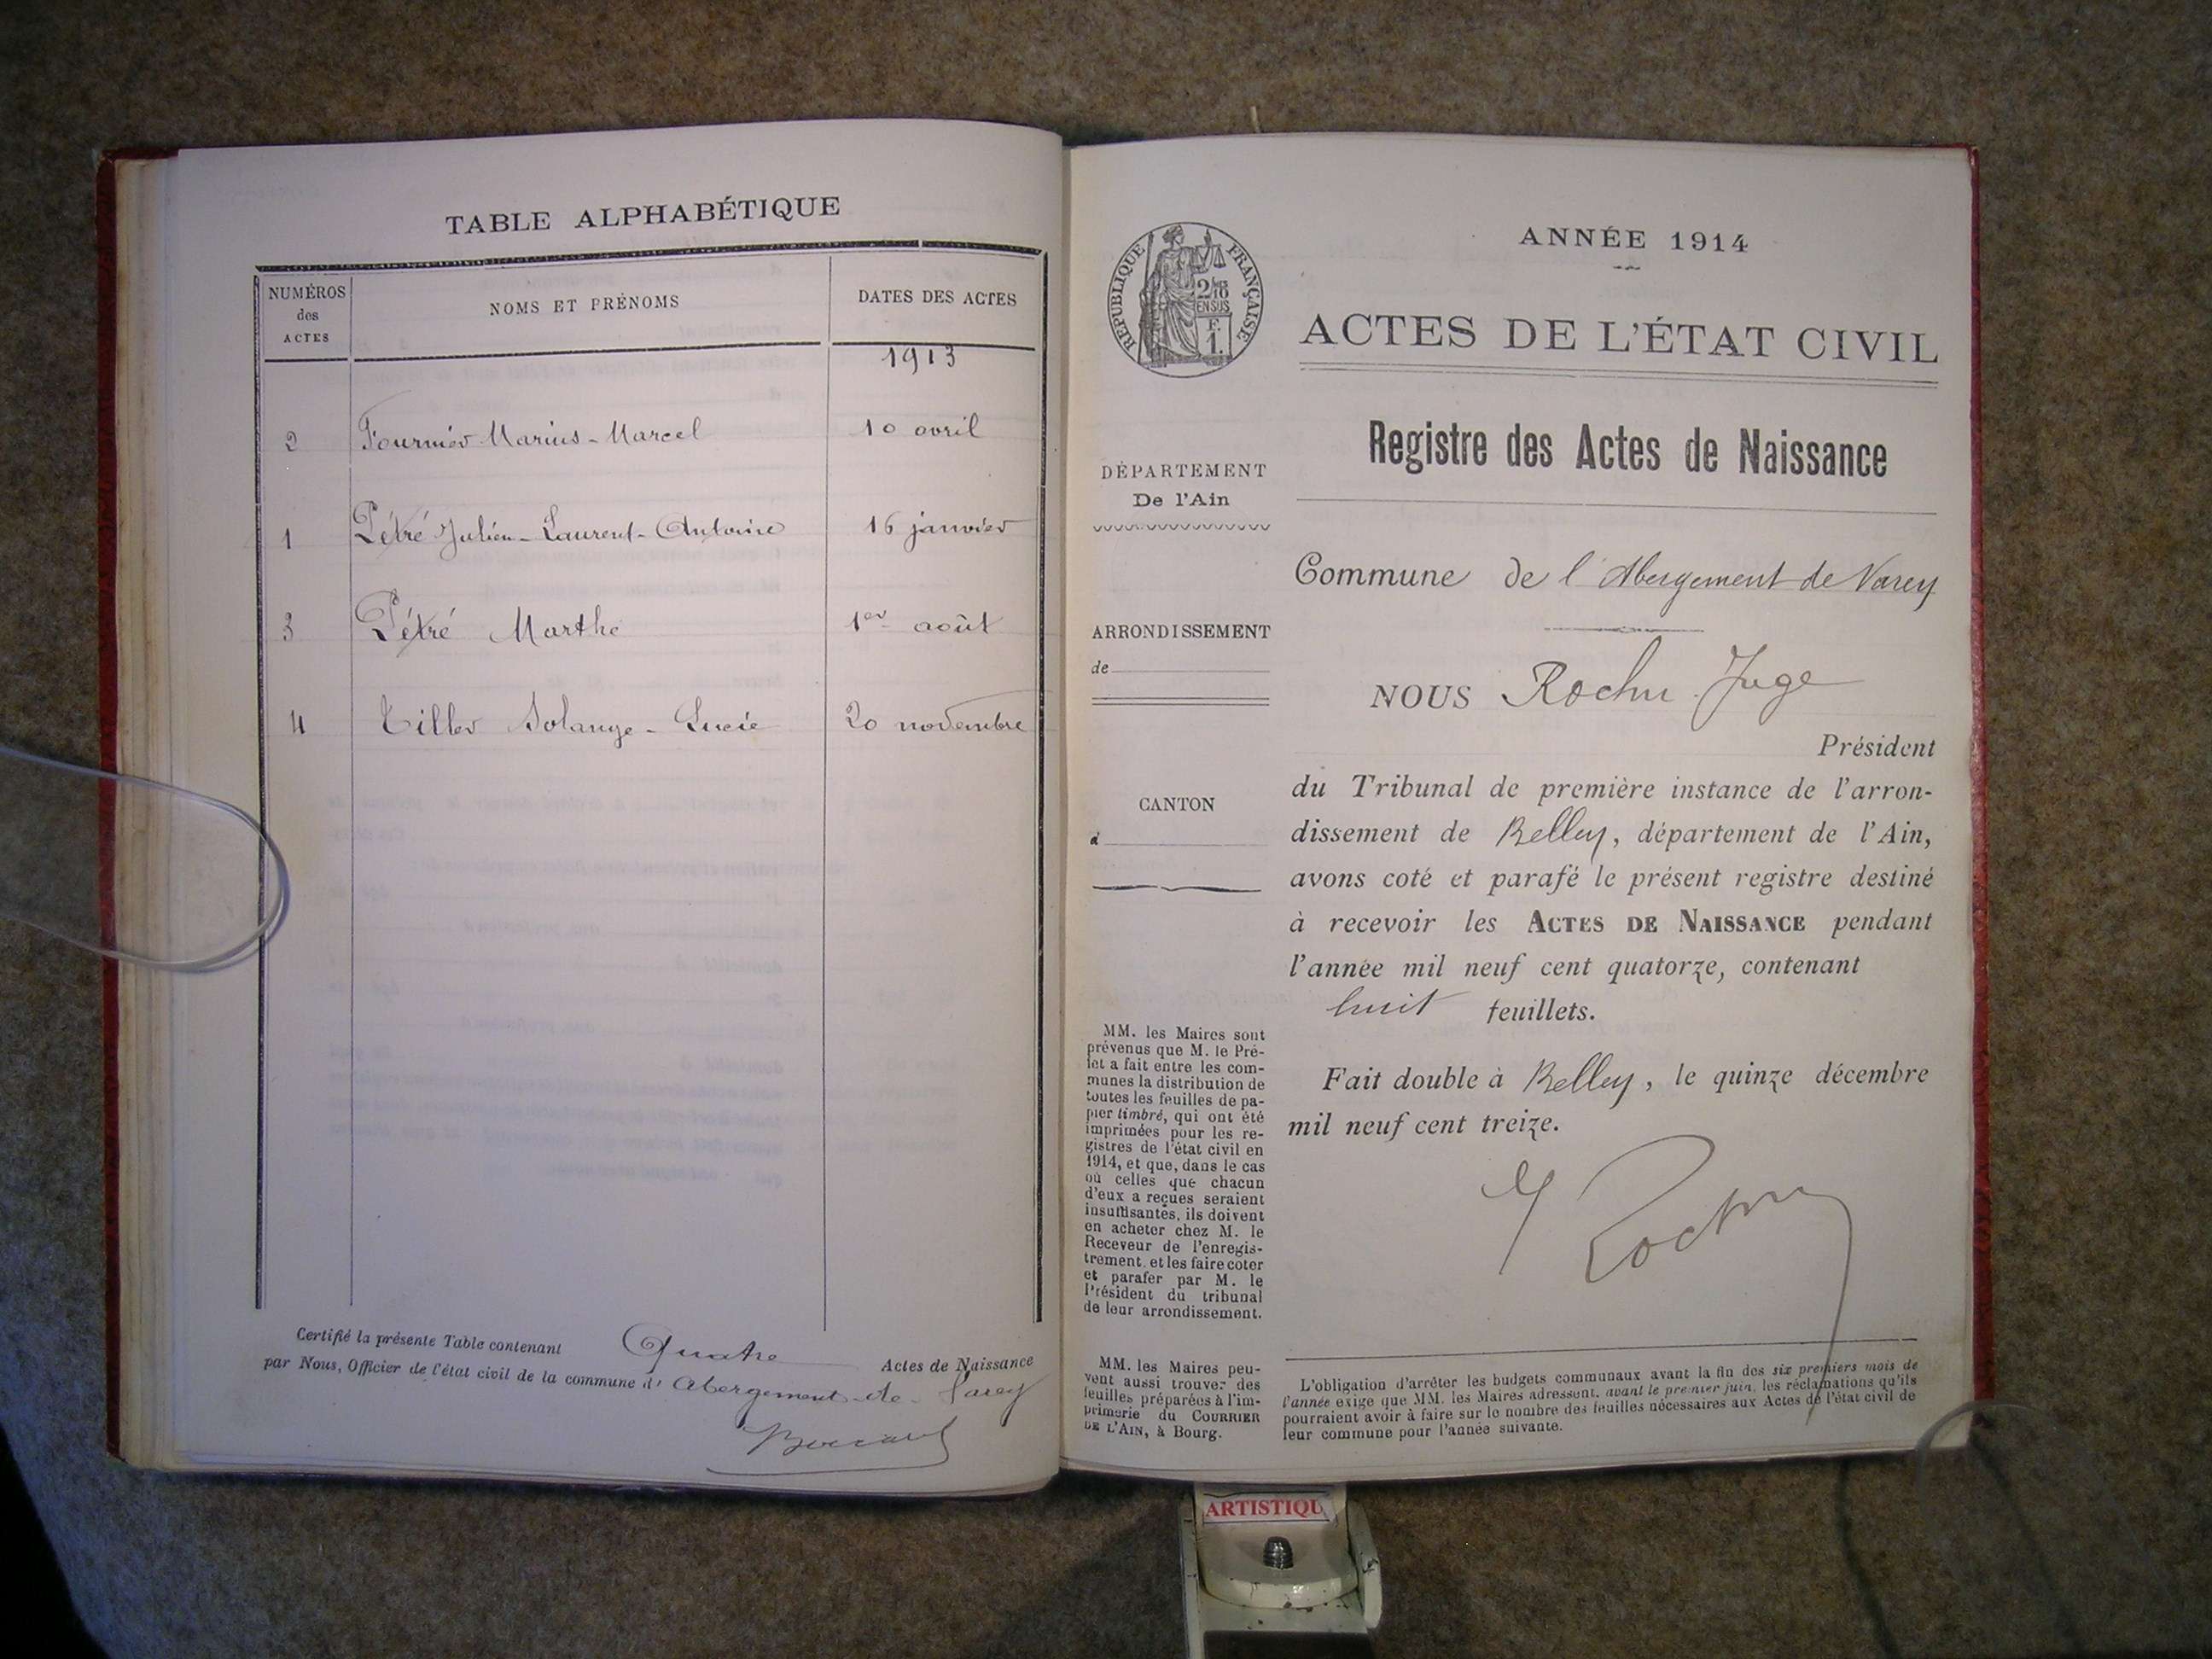 TABLE ALPHABÉTIQUE
NUMÉROS des ACTES
NOMS ET PRÉNOMS
DATES DES ACTES
1913
2 Fournier Marius-Marcel 10 avril
1 Pétré Julien-Laurent-Antoine 16 janvier
3 Pétré Marthe 1er août
4 Tiller Solange-Lucie 20 novembre
Certifié la présente Table contenant Quatre Actes de Naissance
par Nous, Officier de l'état civil de la commune d' Abergement-de-Varey
RÉPUBLIQUE FRANÇAISE
2/10
EN SUS
F.
1.
DÉPARTEMENT
De l'Ain
ARRONDISSEMENT
de
CANTON
d
MM. les Maires sont
prévenus que M. le Pré-
fet a fait entre les com-
munes la distribution de
toutes les feuilles de pa-
pier timbré, qui ont été
imprimées pour les re-
gistres de l'état civil en
1914, et que, dans le cas
où celles que chacun
d'eux a reçues seraient
insuffisantes, ils doivent
en acheter chez M. le
Receveur de l'enregis-
trement, et les faire coter
et parafer par M. le
Président du tribunal
de leur arrondissement.
MM. les Maires peu-
vent aussi trouver des
feuilles préparées à l'im-
primerie du COURRIER
DE L'AIN, à Bourg.
ANNÉE 1914
ACTES DE L'ÉTAT CIVIL
Registre des Actes de Naissance
Commune de l'Abergement de Varey
NOUS Rochu Juge
Président
du Tribunal de première instance de l'arron-
dissement de Belley, département de l'Ain,
avons coté et parafé le présent registre destiné
à recevoir les ACTES DE NAISSANCE pendant
l'année mil neuf cent quatorze, contenant
huit feuillets.
Fait double à Belley, le quinze décembre
mil neuf cent treize.
Rochu
L'obligation d'arrêter les budgets communaux avant la fin des six premiers mois de
l'année exige que MM. les Maires adressent, avant le premier juin, les réclamations qu'ils
pourraient avoir à faire sur le nombre des feuilles nécessaires aux Actes de l'état civil de
leur commune pour l'année suivante.
ARTISTIQU